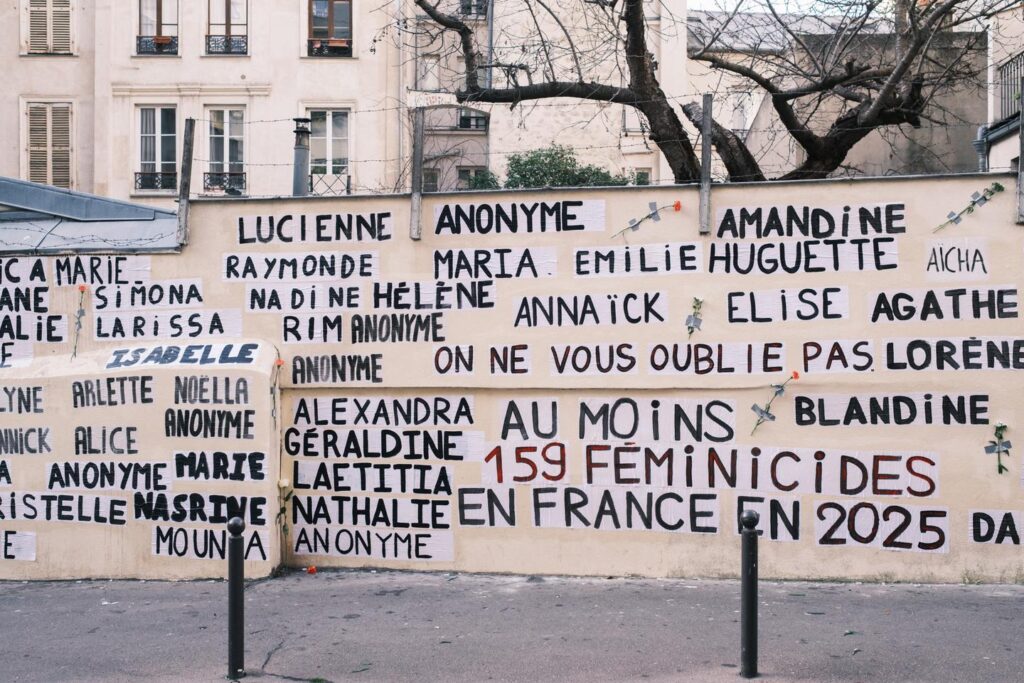 LUCIENNE ANONYME AMANDiNE
MARiE RAYMONDE MARIA. EMiLiE HUGUETTE AÏCHA
SiMONA NADiNE HÉLÈNE ANNAÏCK ELiSE AGATHE
LARiSSA RiM ANONYME
ISABELLE ANONYME ON NE VOUS OUBLiE PAS. LORÈNE
ARLETTE NOËLLA ALEXANDRA AU MOiNS BLANDiNE
ANONYME GÉRALDiNE
ALiCE
ANONYME MARiE LAETiTiA 159 FÉMiNiCiDES
NASRiNE NATHALiE EN FRANCE EN 2025 DA
MOUNiA ANONYME